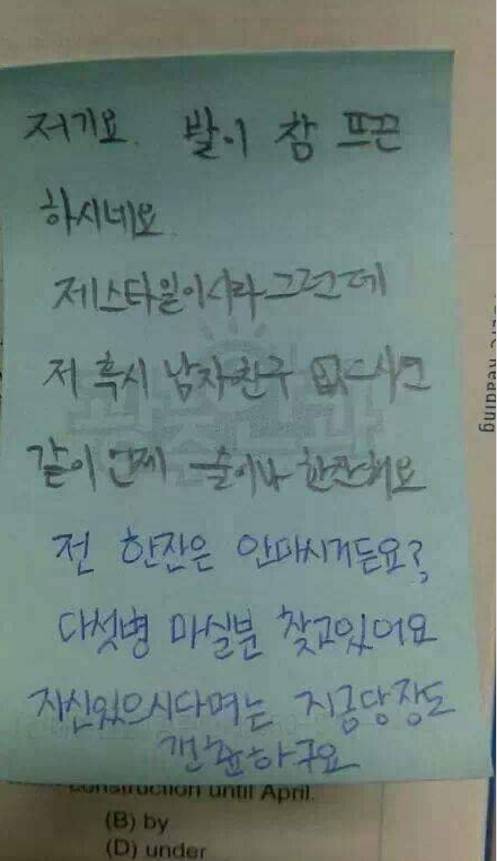 저기요. 발이 참 뜨끈
하시네요.
제스타일이시라그런데
저 혹시 남자친구 없으시면
같이 언제 술이나 한잔해요
전 한잔은 안마시거든요?
다섯병 마실분 찾고있어요
자신있으시다며는 지금당장도
갠춘하구요
construction until April.
(B) by
(D) under
Reading